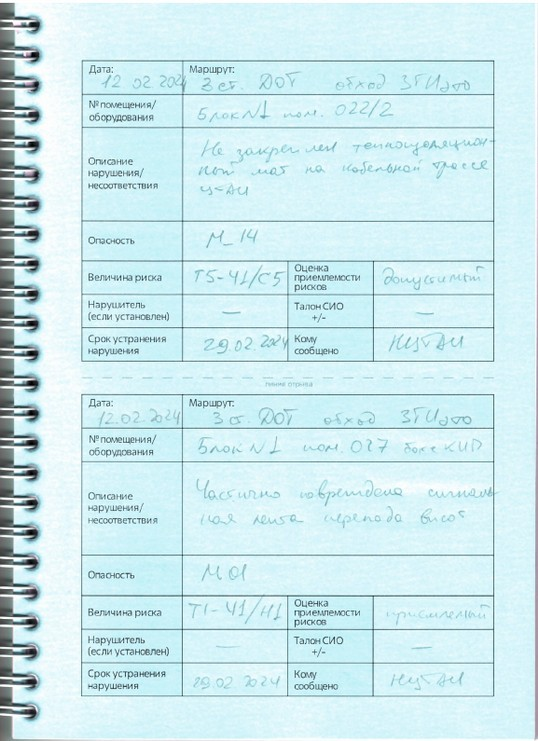 Дата: Маршрут:
12 02.2024 3 ст. ДОТ обход ЗГИэто
№ помещения/
оборудования
Блок №1 пом. 022/2
Описание
нарушения/
несоответствия
Не закреплен теплоизоляцион-
ный мат на кабельной трассе
ЦТАИ
Опасность М_14
Величина риска Т5-Ч1/С5 Оценка
приемлемости
рисков допустимый
Нарушитель
(если установлен) — Талон СИО
+/- —
Срок устранения
нарушения 29.02.2024 Кому
сообщено НЦТАИ
линия отрыва
Дата: Маршрут:
12.02.2024 3 ст. ДОТ обход ЗГИэто
№ помещения/
оборудования
Блок №1 пом. 027 бокс КИП
Описание
нарушения/
несоответствия
Частично повреждена сигналь
ная лента перепада высот
Опасность М01
Величина риска Т1-Ч1/Н1 Оценка
приемлемости
рисков приемлемый
Нарушитель
(если установлен) — Талон СИО
+/- —
Срок устранения
нарушения 29.02.2024 Кому
сообщено НЦТАИ